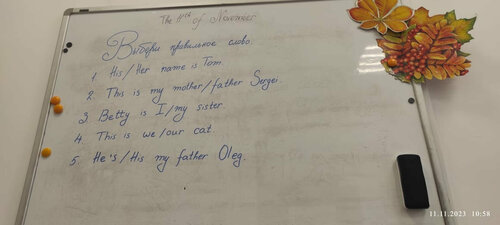 The 11th of November
Выбери правильное слово.
1. His/Her name is Tom.
2. This is my mother/father Sergei.
3. Betty is I/my sister.
4. This is we/our cat.
5. He's/His my father Oleg.
11.11.2023 10:58